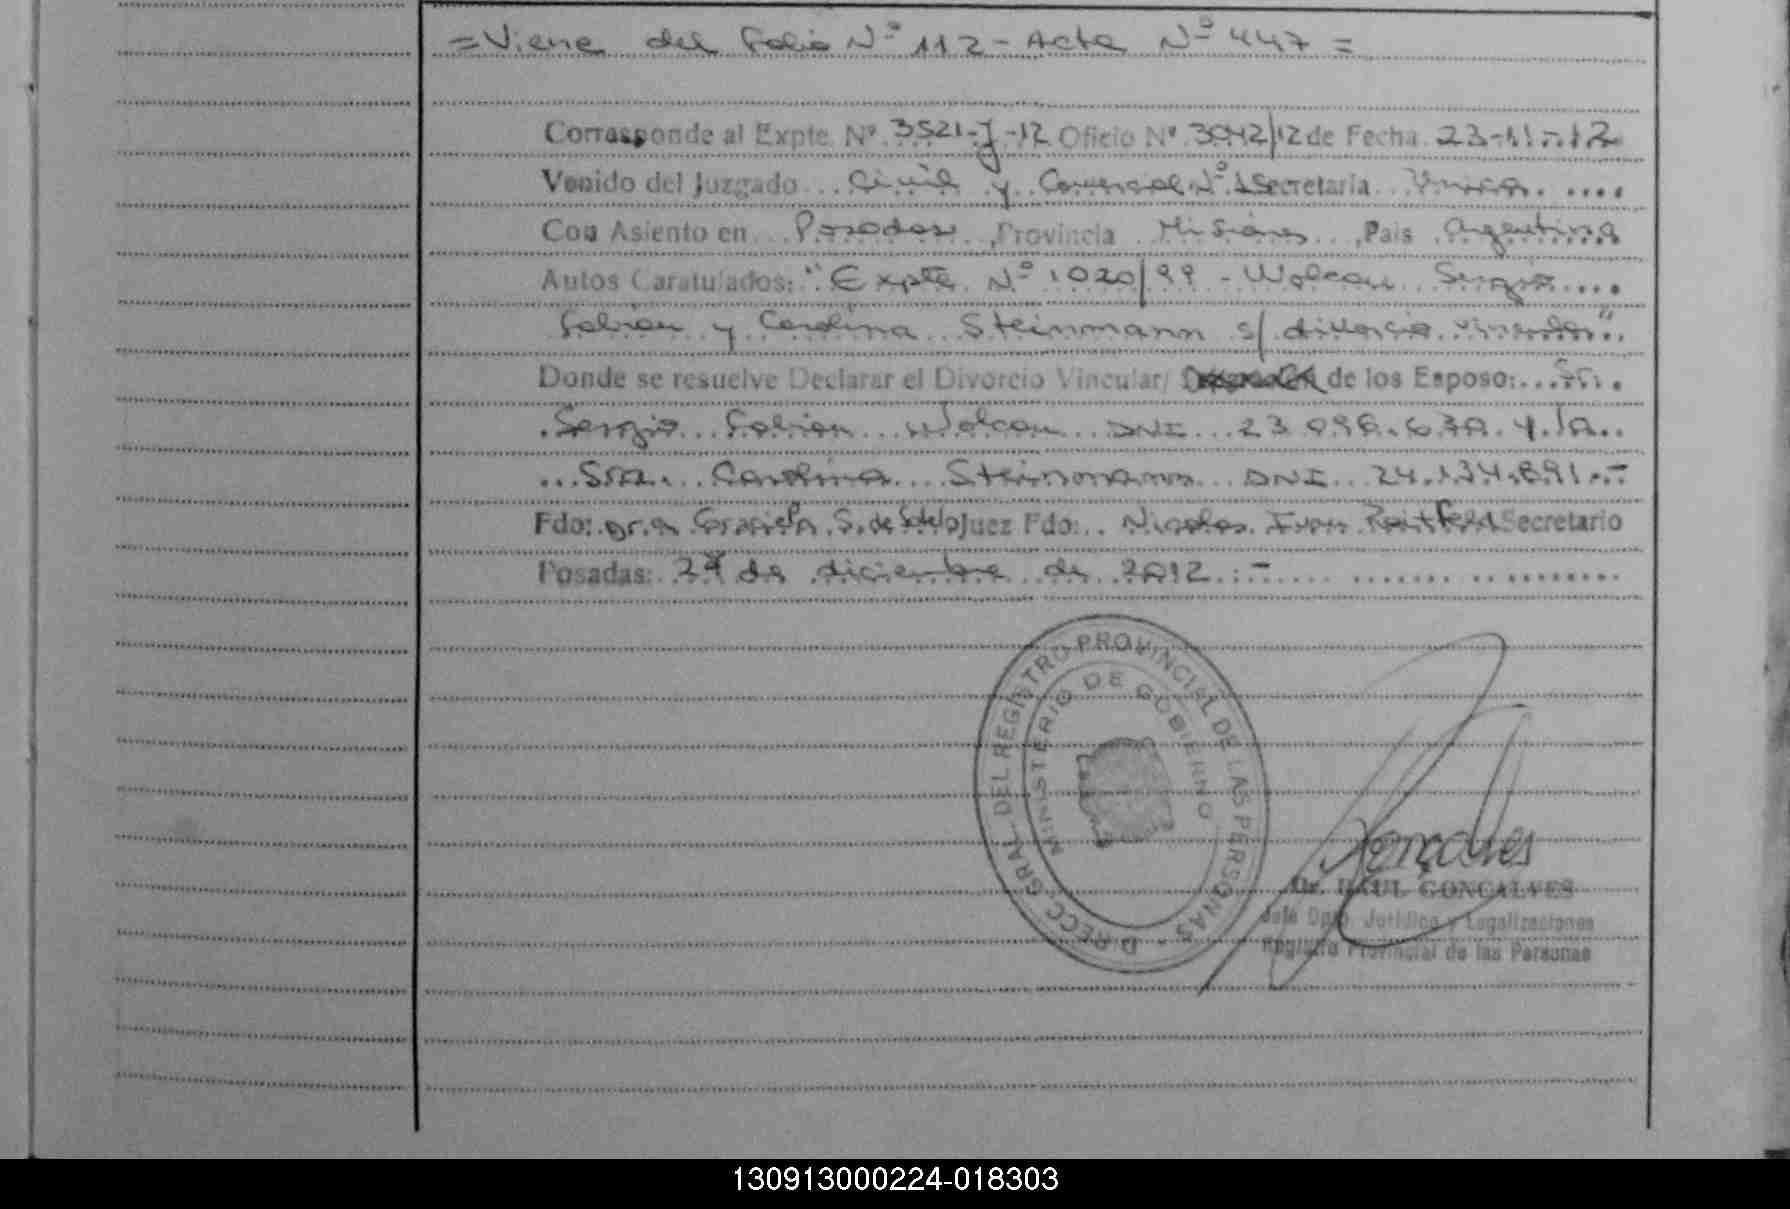 =Viene del Folio Nº 112 - Acta Nº 447 =
Corresponde al Expte. Nº 3521-J-12 Oficio Nº 3042/12 de Fecha 23-11-12
Venido del Juzgado Civil y Comercial Nº 1 Secretaria Unica
Con Asiento en Posadas, Provincia Misiones, Pais Argentina
Autos Caratulados: "Expte Nº 1020/99 - Wolcan Sergio
Fabian y Carolina Steinmann s/ divorcio vincular"
Donde se resuelve Declarar el Divorcio Vincular/ de los Esposo: Sr.
Sergio Fabian Wolcan DNI 23.096.630 y la
Sra. Carolina Steinmann DNI 24.134.891.-
Fdo: Dra Graciela S. de Sotelo Juez Fdo: Nicolas Ivan Secretario
Posadas: 29 de diciembre de 2012.-
DIRECC. GRAL. DEL REGISTRO PROVINCIAL DE LAS PERSONAS
MINISTERIO DE GOBIERNO
Gonçalves
Dr. RAUL GONCALVES
Jefe Dpto. Jurídico y Legalizaciones
Registro Provincial de las Personas
130913000224-018303